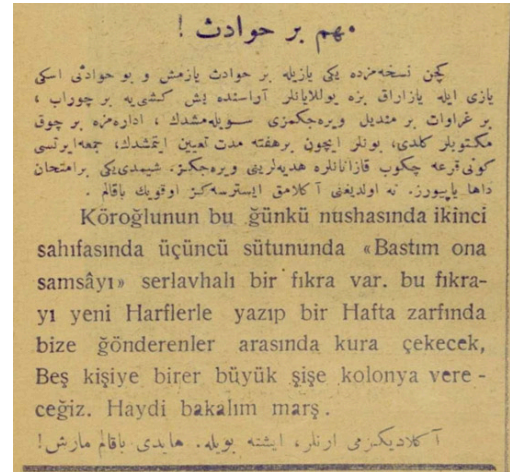 مهم بر حوادث !
كچن نسخه‌مزده يكى يازيله بر حوادث يازمش و بو حوادثى اسكى
يازى ايله يازاراق بزه يوللايانلر آراسنده بش كشى‌يه بر چوراب ،
بر غراوات بر منديل ويره‌جكمزى سويله‌مشدك ، اداره‌مزه بر چوق
مكتوبلر كلدى، بونلر ايچون برهفته مدت تعيين ايتمشدك، جمعه‌ايرتسى
كونى قرعه چكوب قازانانلره هديه‌لرينى ويره‌جكز. شيمدى يكى برامتحان
داها ياپييورز. نه اولديغنى آكلامق ايسترسه‌كز اوقويك باقالم .
Köroğlunun bu ğünkü nushasında ikinci
sahıfasında üçüncü sütununda «Bastım ona
samsâyı» serlavhalı bir fıkra var. bu fıkra-
yı yeni Harflerle yazıp bir Hafta zarfında
bize ğönderenler arasında kura çekecek,
Beş kişiye birer büyük şişe kolonya vere-
ceğiz. Haydi bakalım marş.
آكلاديكزمى ارنلر، ايشته بويله. هايدى باقالم مارش!